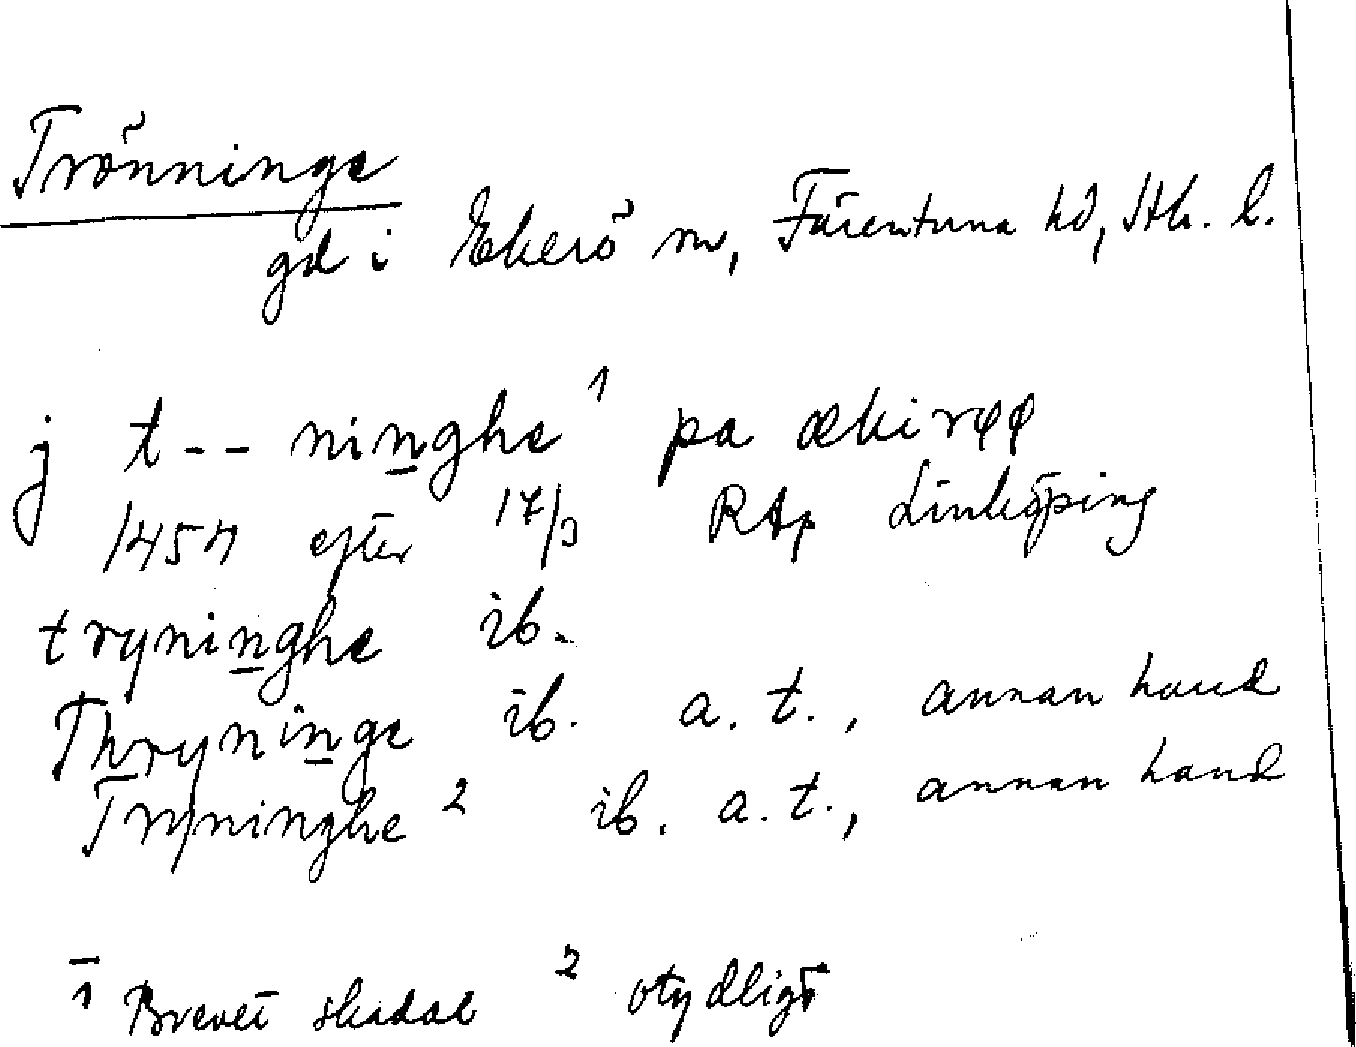 Trönninge
gd i Ekerö sn, Färentuna hd, Sth. l.
j t-- ninghe¹ pa ækirøø
1454 efter 17/3 RAp Linköping
tryninghe ib.
Thryninge ib. a. t., annan hand
Tryninghe² ib. a. t., annan hand
¹ Brevet skadat ² otydligt